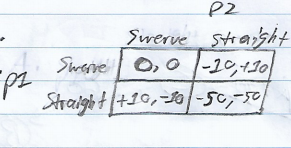 P2
Swerve Straight
P1 Swerve 0, 0 -10, +10
Straight +10, -10 -50, -50